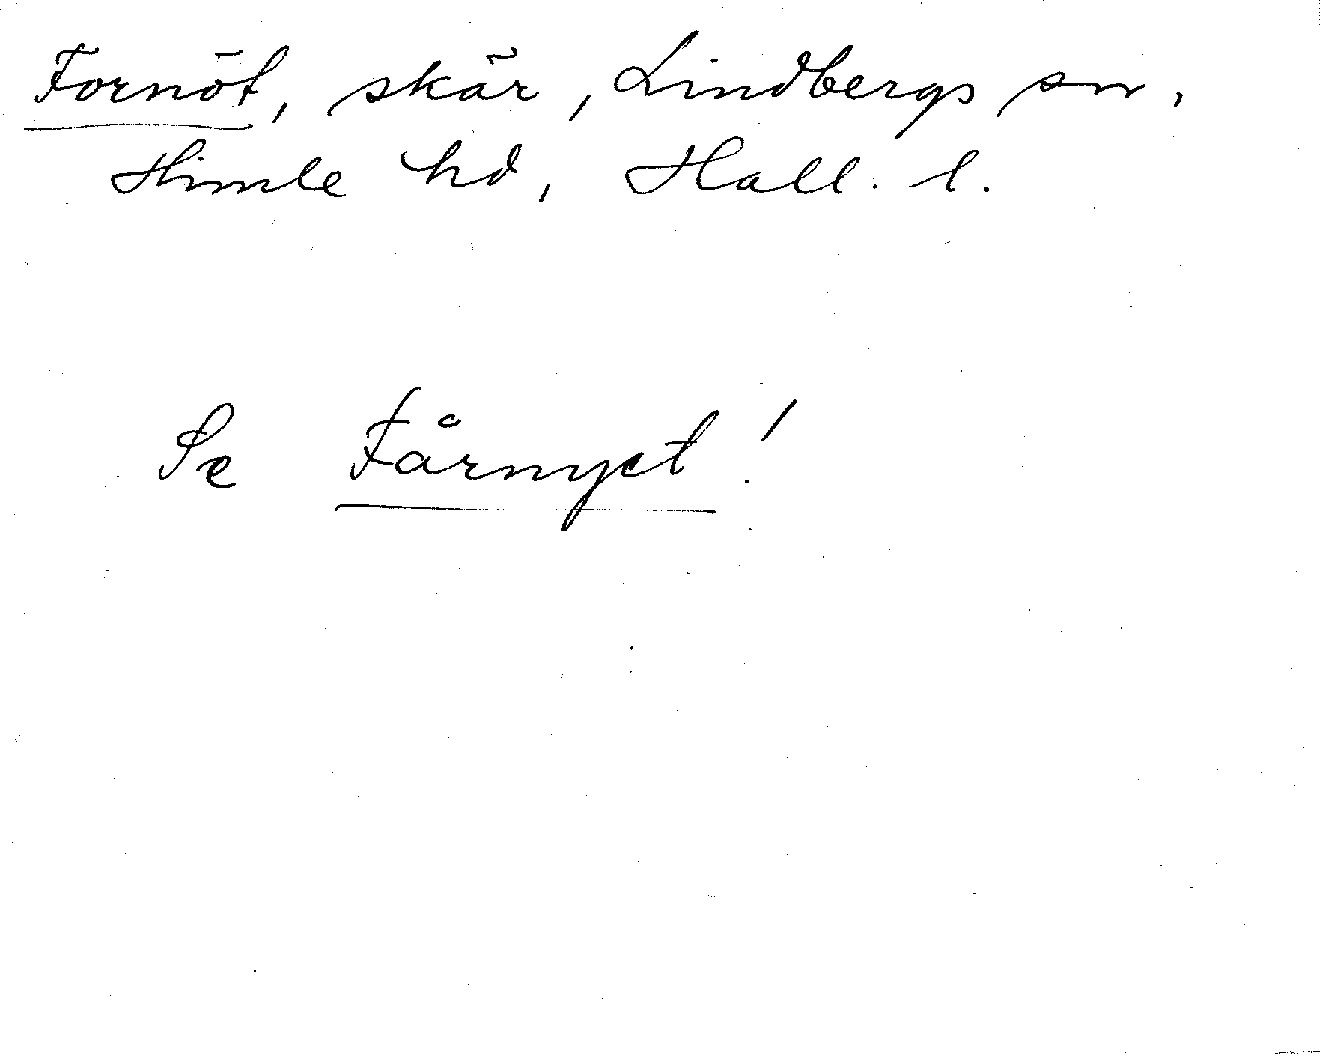 Fornöt, skär, Lindbergs sn,
Himle hd, Hall. l.
Se Fårnyet!